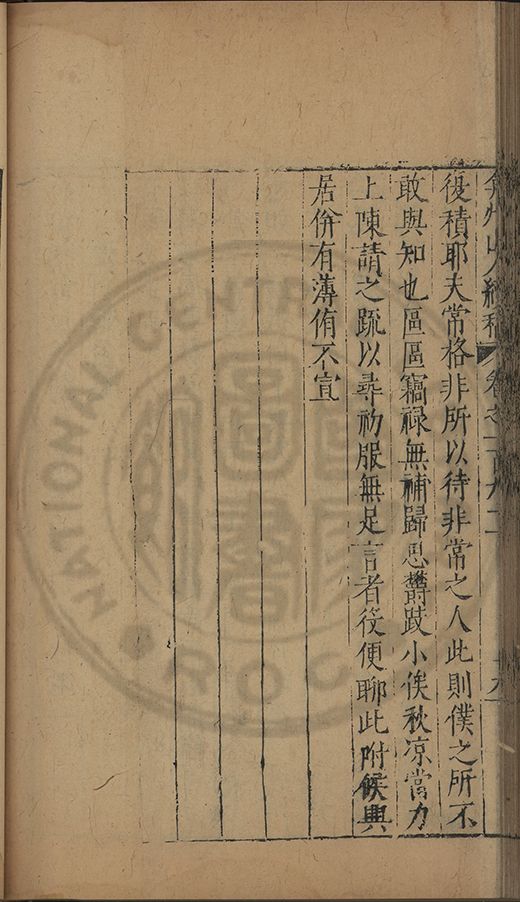 弇州山人續稿 卷之一百八十二 十九
後積耶夫常格非所以待非常之人此則僕之所不
敢與知也區區竊祿無補歸思欝跂小俟秋凉當力
上陳請之疏以尋初服無足言者役便聊此附候興
居併有薄侑不宣